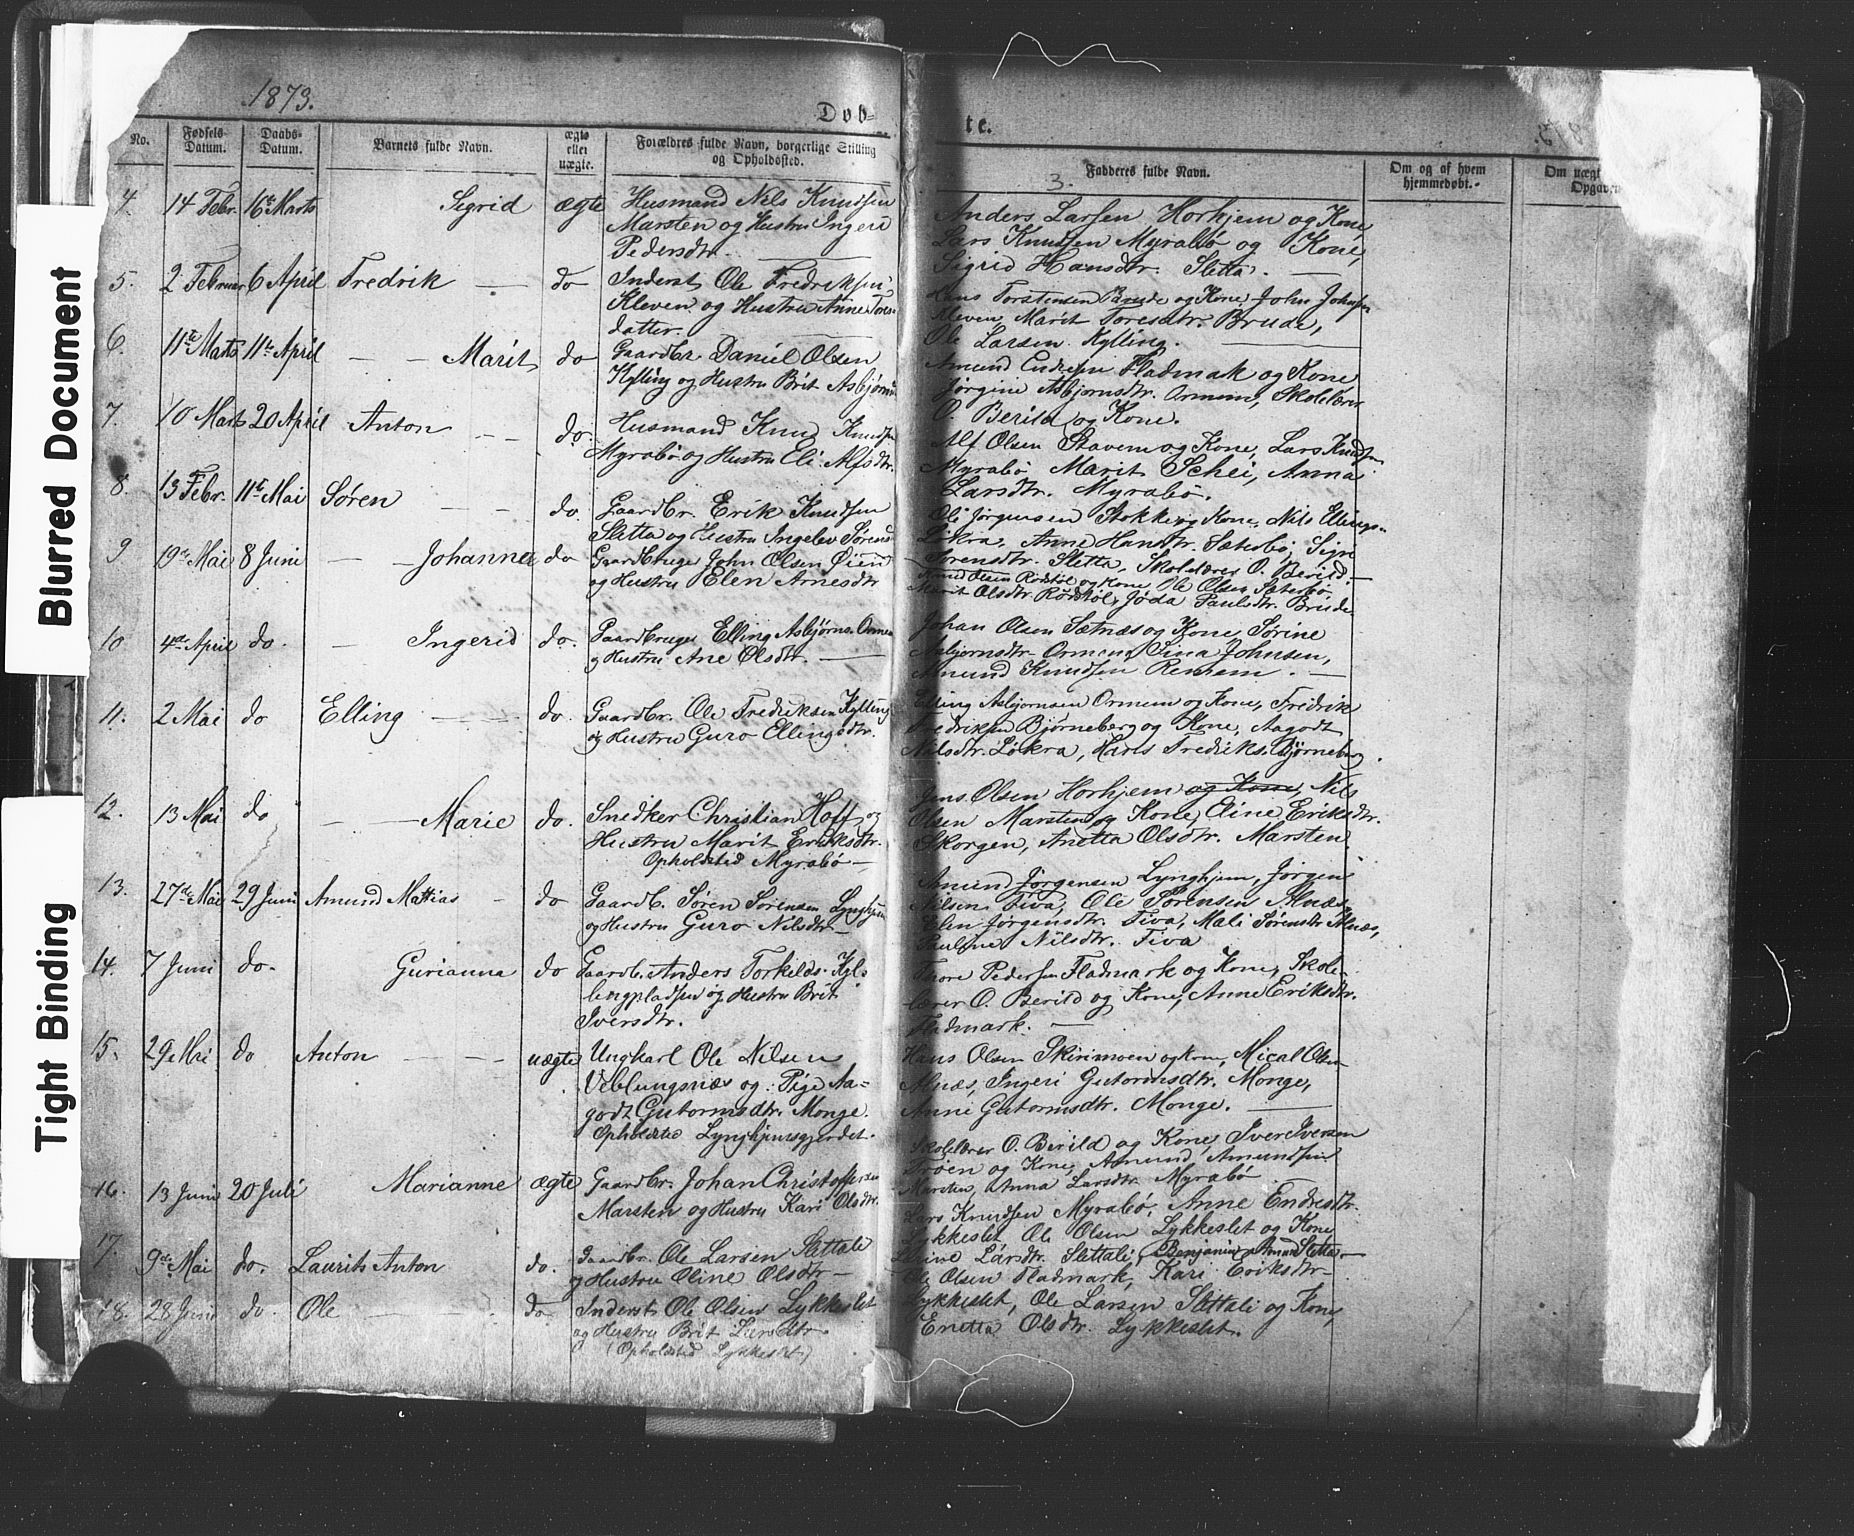 1873.
Døb=
te.
No.
Fødsels-
Datum.
Daabs-
Datum.
Barnets fulde Navn.
ægte
eller
uægte.
Forældres fulde Navn, borgerlige Stilling
og Opholdssted.
3.
Fadderes fulde Navn.
Om og af hvem
hjemmedøbt.
Om uægt
Opgave
Blurred Document
Tight Binding
4. 14 Febr. 16de Marts Sigrid ægte Husmand Nils Knudsen
Marsten og Hustru Ingeri
Pedersdtr.
Anders Larsen Horhjem og Kone,
Lars Knudsen Myrabø og Kone,
Sigrid Hansdtr. Sletta.
5. 2 Februar 6 April Fredrik do Inderst Ole Fredriksen
Kleven og Hustru Anne Tores-
datter.
Hans Torstensen Brude og Kone, John Johnsen
Kleven, Marit Toresdtr. Brude,
Ole Larsen Kylling.
6. 11te Marts 11te April Marit do Gaardbr. Daniel Olsen
Kylling og Hustru Brit Asbjørnsd
Amund Endresen Fladmak og Kone
Jørgine Asbjørnsdtr. Ormem, Skolelærer
O. Berild og Kone.
7. 10 Marts 20 April Anton do. Husmand Knud Knudsen
Myrabø og Hustru Eli Alfsdtr.
Alf Olsen Stavem og Kone, Lars Knudsen
Myrabø Marit Schei, Anna
Larsdtr. Myrabø.
8. 13 Febr. 11te Mai Søren do. Gaardbr. Erik Knudsen
Sletta og Hustru Ingelev Sørensd
Ole Jørgensen Stokke og Kone, Nils Ellings.
Løkra, Anne Hansdtr. Sæterbø, Signi
Sørensdtr. Sletta, Skolelærer O. Berild.
9 19de Mai 8 Juni Johanna do Gaardbruger John Olsen Øien
og Hustru Elen Arnesdtr
Amund Olsen Rødstøl og Kone, Ole Olsen Sæterbø,
Marit Olsdtr. Rødstøl, Jøda Paulsdtr. Brude
10 4de April do. Ingerid do. Gaardbruger Elling Asbjørns. Ormem
og Hustru Ane Olsdtr.
Johan Olsen Sætnæs og Kone, Sørine
Asbjørnsdtr. Ormem, Tina Johnsen,
Amund Knudsen Remmem.
11. 2 Mai do Elling do. Gaardbr. Ole Fredriksen Kylling
og Hustru Guro Ellingsdtr.
Elling Asbjørnsen Ormem og Kone, Fredrik
Fredriksen Bjørneberg og Kone, Aagodt
Nilsdtr. Løkra, Hans Fredriks. Bjørneberg.
12. 13 Mai do Marie do. Snedker Christian Hoff og
Hustru Marit Eriksdtr.
Opholdsted Myrabø
Jens Olsen Horhjem og Kone, Nils
Olsen Marsten og Kone, Eline Eriksdtr.
Skorgen, Anetta Olsdtr. Marsten
13. 27de Mai 29 Juni Amund Mattias do Gaardb. Søren Sørensen Lynghjem
og Hustru Guro Nilsdtr.
Amund Jørgensen Lynghjem, Jørgen
Nilsen Tiva, Ole Sørensen Alnæs,
Elen Jørgensdtr. Tiva, Mali Sørensdtr Alnæs,
Pauline Nilsdtr. Tiva
14. 7 Juni do. Gurianna do Gaardb. Anders Torkilds. Kyl-
lingpladsen og Hustru Brit
Iversdtr.
Thore Pedersen Fladmark og Kone, Skole-
lærer O. Berild og Kone, Anne Eriksdtr.
Fladmark.
15. 29 Mai do Anton uægte Ungkarl Ole Nilsen
Veblungsnæs og Pige Aa-
godt Gutormsdtr. Monge.
Opholdsted Lynghjemsgjerdet.
Hans Olsen Skirimoen og Kone, Mical Olsen
Alnæs, Ingeri Gutormsdtr. Monge,
Anne Gutormsdtr. Monge.
16. 13 Juni 20 Juli Marianne ægte Gaardbr. Johan Christoffersen
Marsten og Hustru Kari Olsdtr.
Skolelærer O. Berild og Kone, Iver Iversen
Trøen og Kone, Amund Amundsen
Marsten, Anna Larsdtr. Myrabø
Lars Knudsen Myrabø, Anne Endresdtr.
17. 9de Mai do. Laurits Anton do. Gaardbr. Ole Larsen Slettali
og Hustru Oline Olsdtr
Lykkeslet Ole Olsen Lykkeslet og Kone
Larsdtr. Slettali, Benjamin Amund Sletta
Ole Olsen Fladmark, Kari Eriksdtr
18. 28 Juni do. Ole do. Inderst Ole Olsen Lykkeslet
og Hustru Brit Larsdtr
(Opholdsted Lykkeslet)
Lykkeslet, Ole Larsen Slettali og Kone,
Enetta Olsdtr. Lykkeslet.